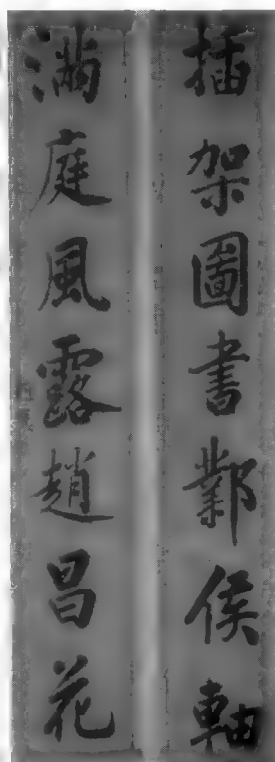 插架圖書鄴侯軸
滿庭風露趙昌花